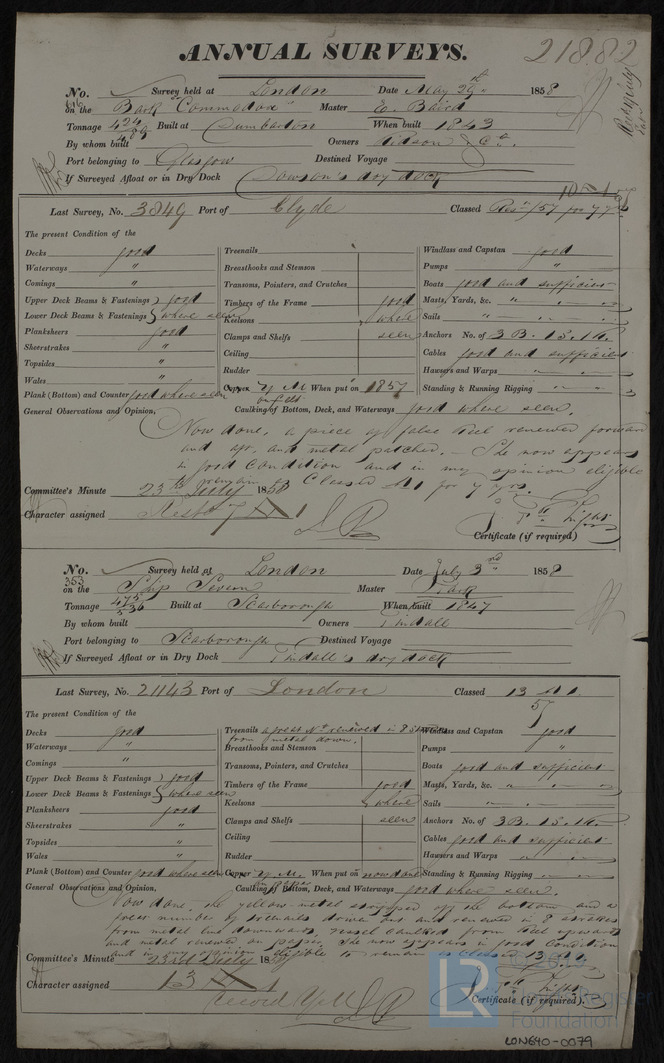 ANNUAL SURVEYS.
21882
No. Survey held at London Date May 29th 1858
616
on the Bark "Commodore" Master E. Baird
Tonnage 424 Built at Dumbarton When built 1843
489
By whom built Owners & Co.
Port belonging to Glasgow Destined Voyage
If Surveyed Afloat or in Dry Dock Dowson's dry dock
Last Survey, No. 3849 Port of Clyde Classed Resd /57 for 7 yrs
The present Condition of the
Decks good Treenails Windlass and Capstan good
Waterways " Breasthooks and Stemson Pumps "
Comings " Transoms, Pointers, and Crutches Boats good and sufficient
Upper Deck Beams & Fastenings good Timbers of the Frame good Masts, Yards, &c. " "
Lower Deck Beams & Fastenings where seen Keelsons where Sails " "
Planksheers good Clamps and Shelfs seen Anchors No. of 3 B. 1 S. 1 K.
Sheerstrakes " Ceiling Cables good and sufficient
Topsides " Rudder Hawsers and Warps " "
Wales "
Plank (Bottom) and Counter good where seen Copper Y M on felt When put on 1857 Standing & Running Rigging " "
General Observations and Opinion, Caulking of Bottom, Deck, and Waterways good where seen.
Now done, a piece of false keel renewed forward
and aft, and metal patched. – She now appears
in good condition and in my opinion eligible
to remain as Classed A1 for 7 yrs.
Committee's Minute 23rd July 1858
Character assigned Restd 7 A 1
Certificate (if required)
No. Survey held at London Date July 3rd 1858
353
on the Ship Severn Master
Tonnage 475 Built at Scarborough When built 1847
536
By whom built Owners Tindall
Port belonging to Scarborough Destined Voyage
If Surveyed Afloat or in Dry Dock Tindall's dry dock
Last Survey, No. 21143 Port of London Classed 13 A1.
57
The present Condition of the
Decks good Treenails a great No. renewed in 8 strakes from metal down. Windlass and Capstan good
Waterways " Breasthooks and Stemson Pumps "
Comings " Transoms, Pointers, and Crutches Boats good and sufficient
Upper Deck Beams & Fastenings good Timbers of the Frame good Masts, Yards, &c. " "
Lower Deck Beams & Fastenings where seen Keelsons where Sails " "
Planksheers good Clamps and Shelfs seen Anchors No. of 3 B. 1 S. 1 K.
Sheerstrakes " Ceiling Cables good and sufficient
Topsides " Rudder Hawsers and Warps " "
Wales "
Plank (Bottom) and Counter good where seen Copper Y. M. on paper When put on now done Standing & Running Rigging " "
General Observations and Opinion, Caulking of Bottom, Deck, and Waterways good where seen.
Now done, the yellow metal stripped off the bottom, and a
great number of treenails driven out and renewed in 8 strakes
from metal line downwards, vessel caulked from keel upwards
and metal renewed on paper. She now appears in good condition
and in my opinion eligible to remain as Classed 13 A1.
Committee's Minute 23rd July 1858
Character assigned 13 A 1
Record YM
Certificate (if required).
LR
Foundation
LON640-0079